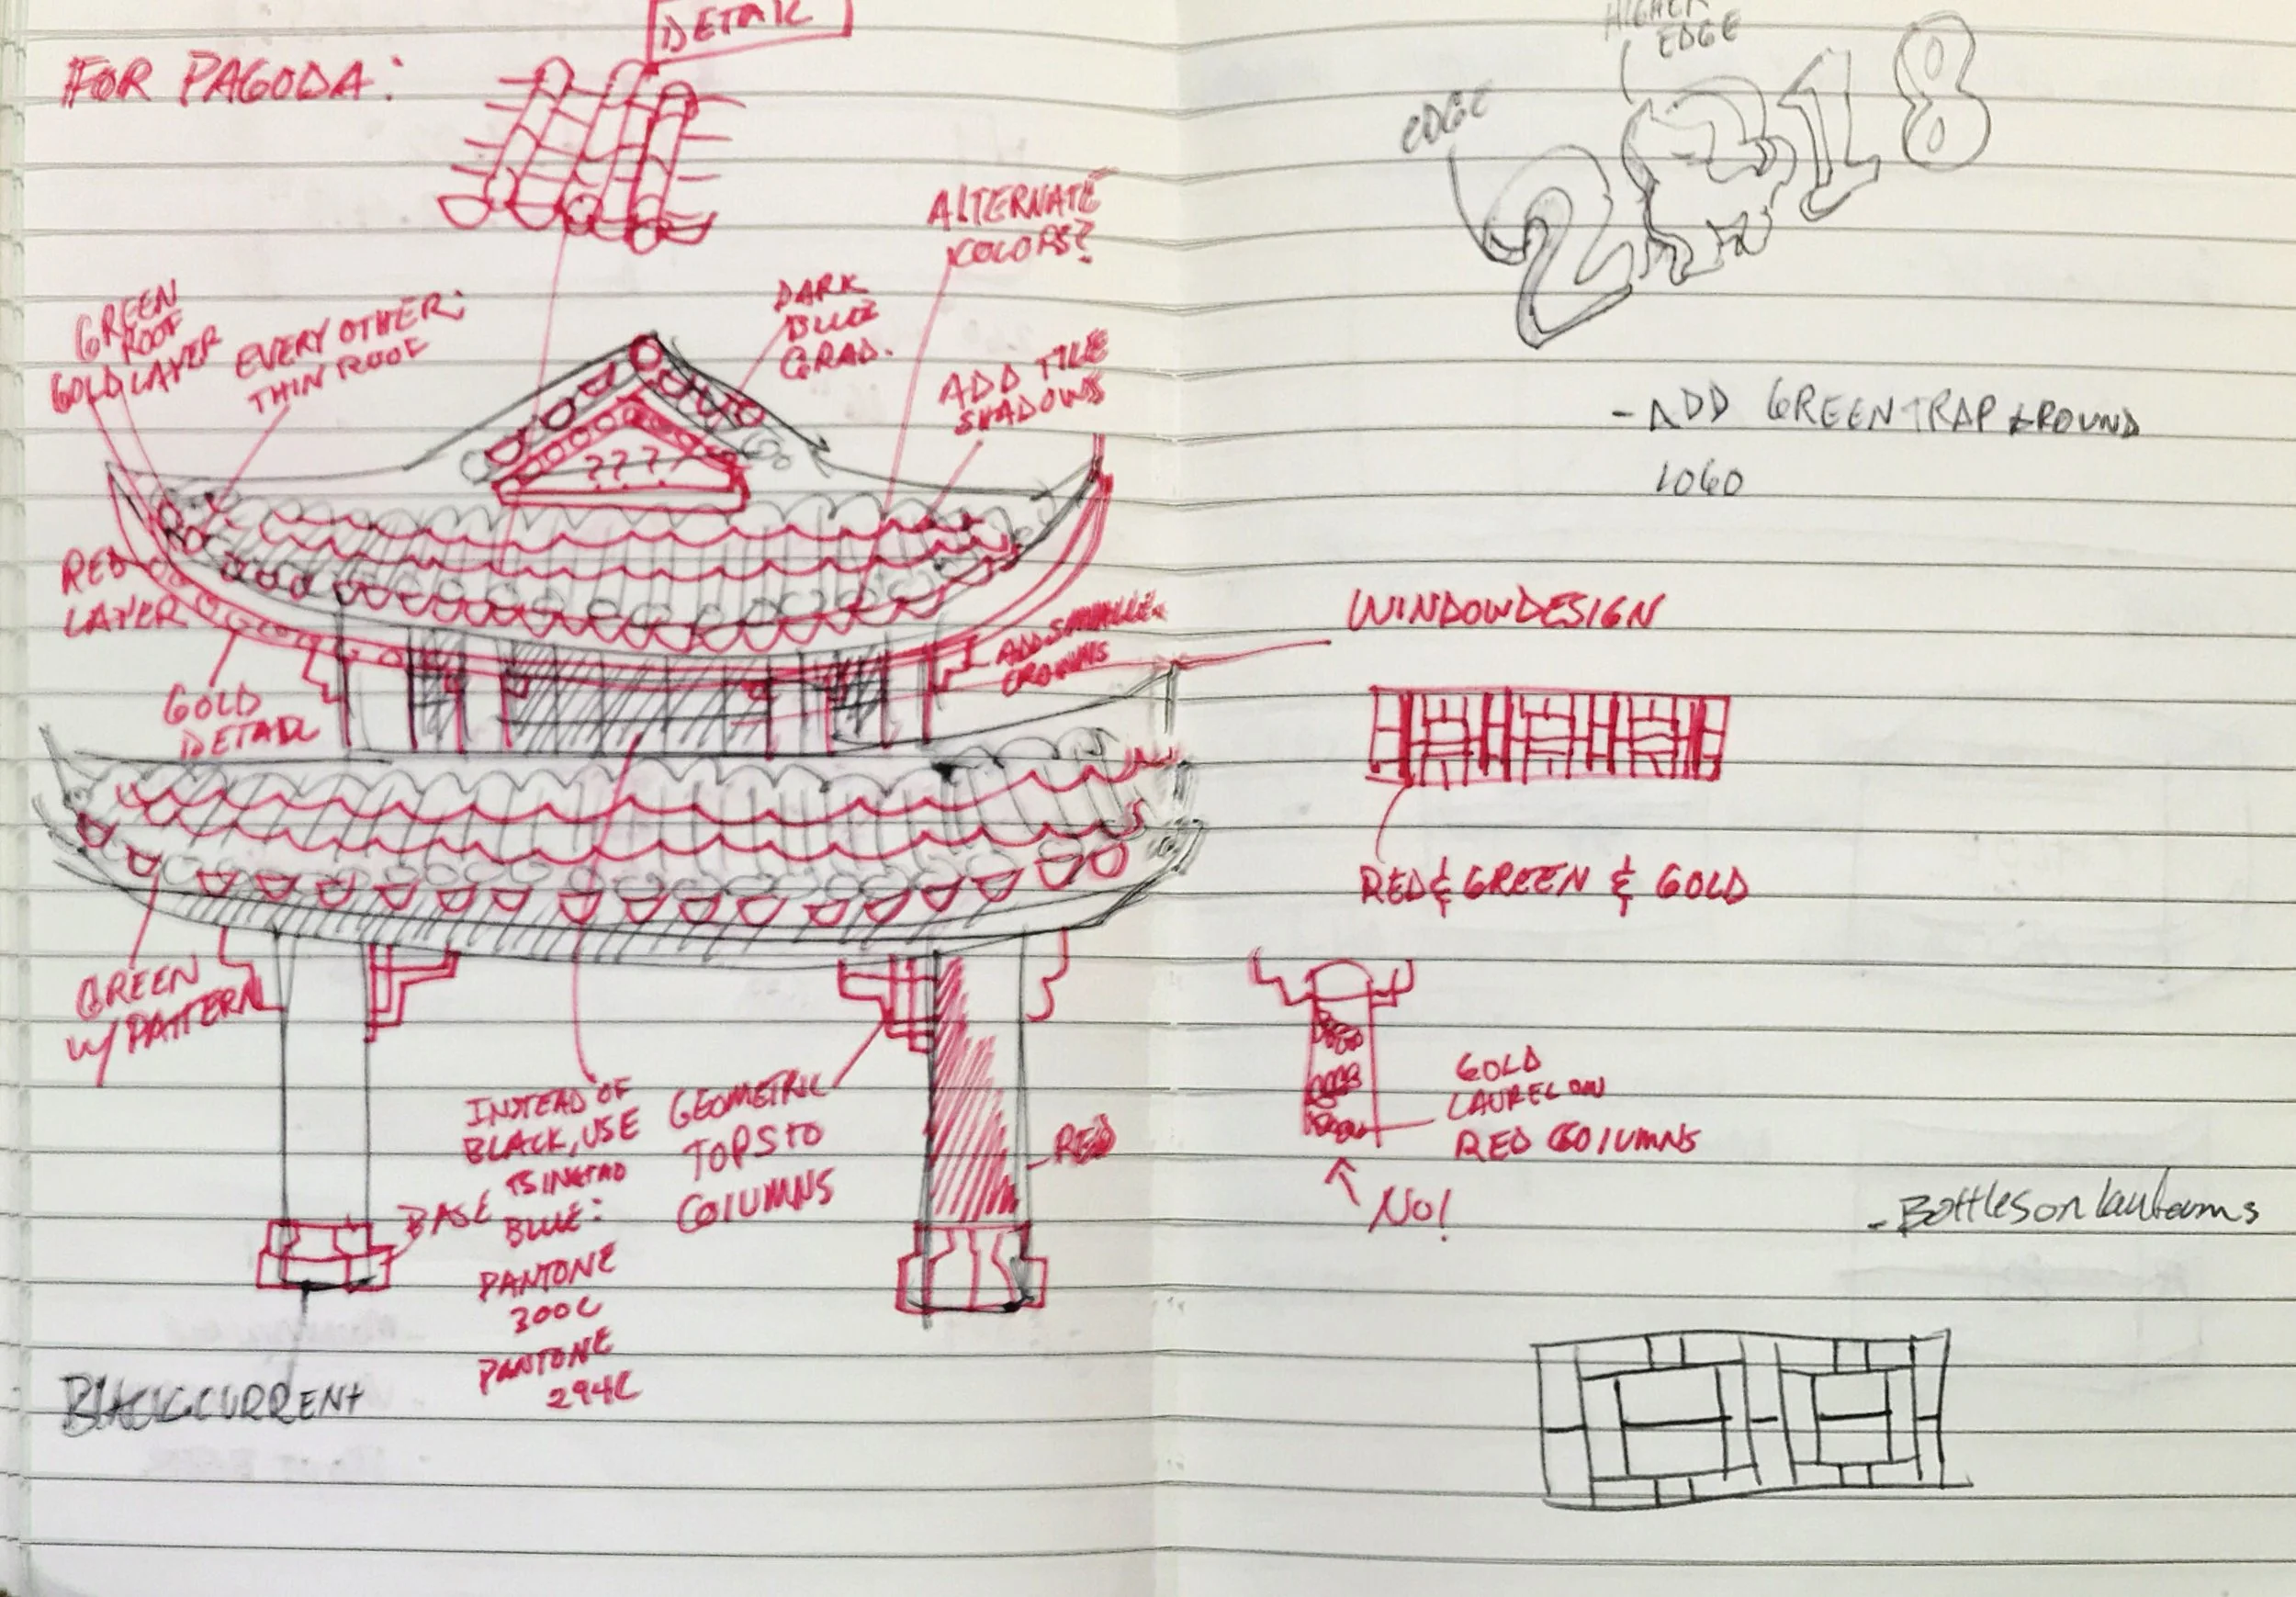 DETAIL
FOR PAGODA:
ALTERNATE
COLORS?
GREEN
ROOF
GOLD LAYER
EVERY OTHER:
THIN ROOF
DARK
BLUE
GRAD.
ADD TILE
SHADOWS
????
RED
LAYER
ADD SMALLER
CROWNS
GOLD
DETAIL
GREEN
W/ PATTERN
INSTEAD OF
BLACK, USE
BLUE:
PANTONE
300C
PANTONE
294C
GEOMETRIC
TOPS TO
COLUMNS
RED
BASE
BLACKCURRENT
HIGHER
EDGE
EDGE
2018
- ADD GREEN TRAP AROUND
LOGO
WINDOW DESIGN
RED & GREEN & GOLD
GOLD
LAUREL ON
RED COLUMNS
NO!
- Bottles on lanterns